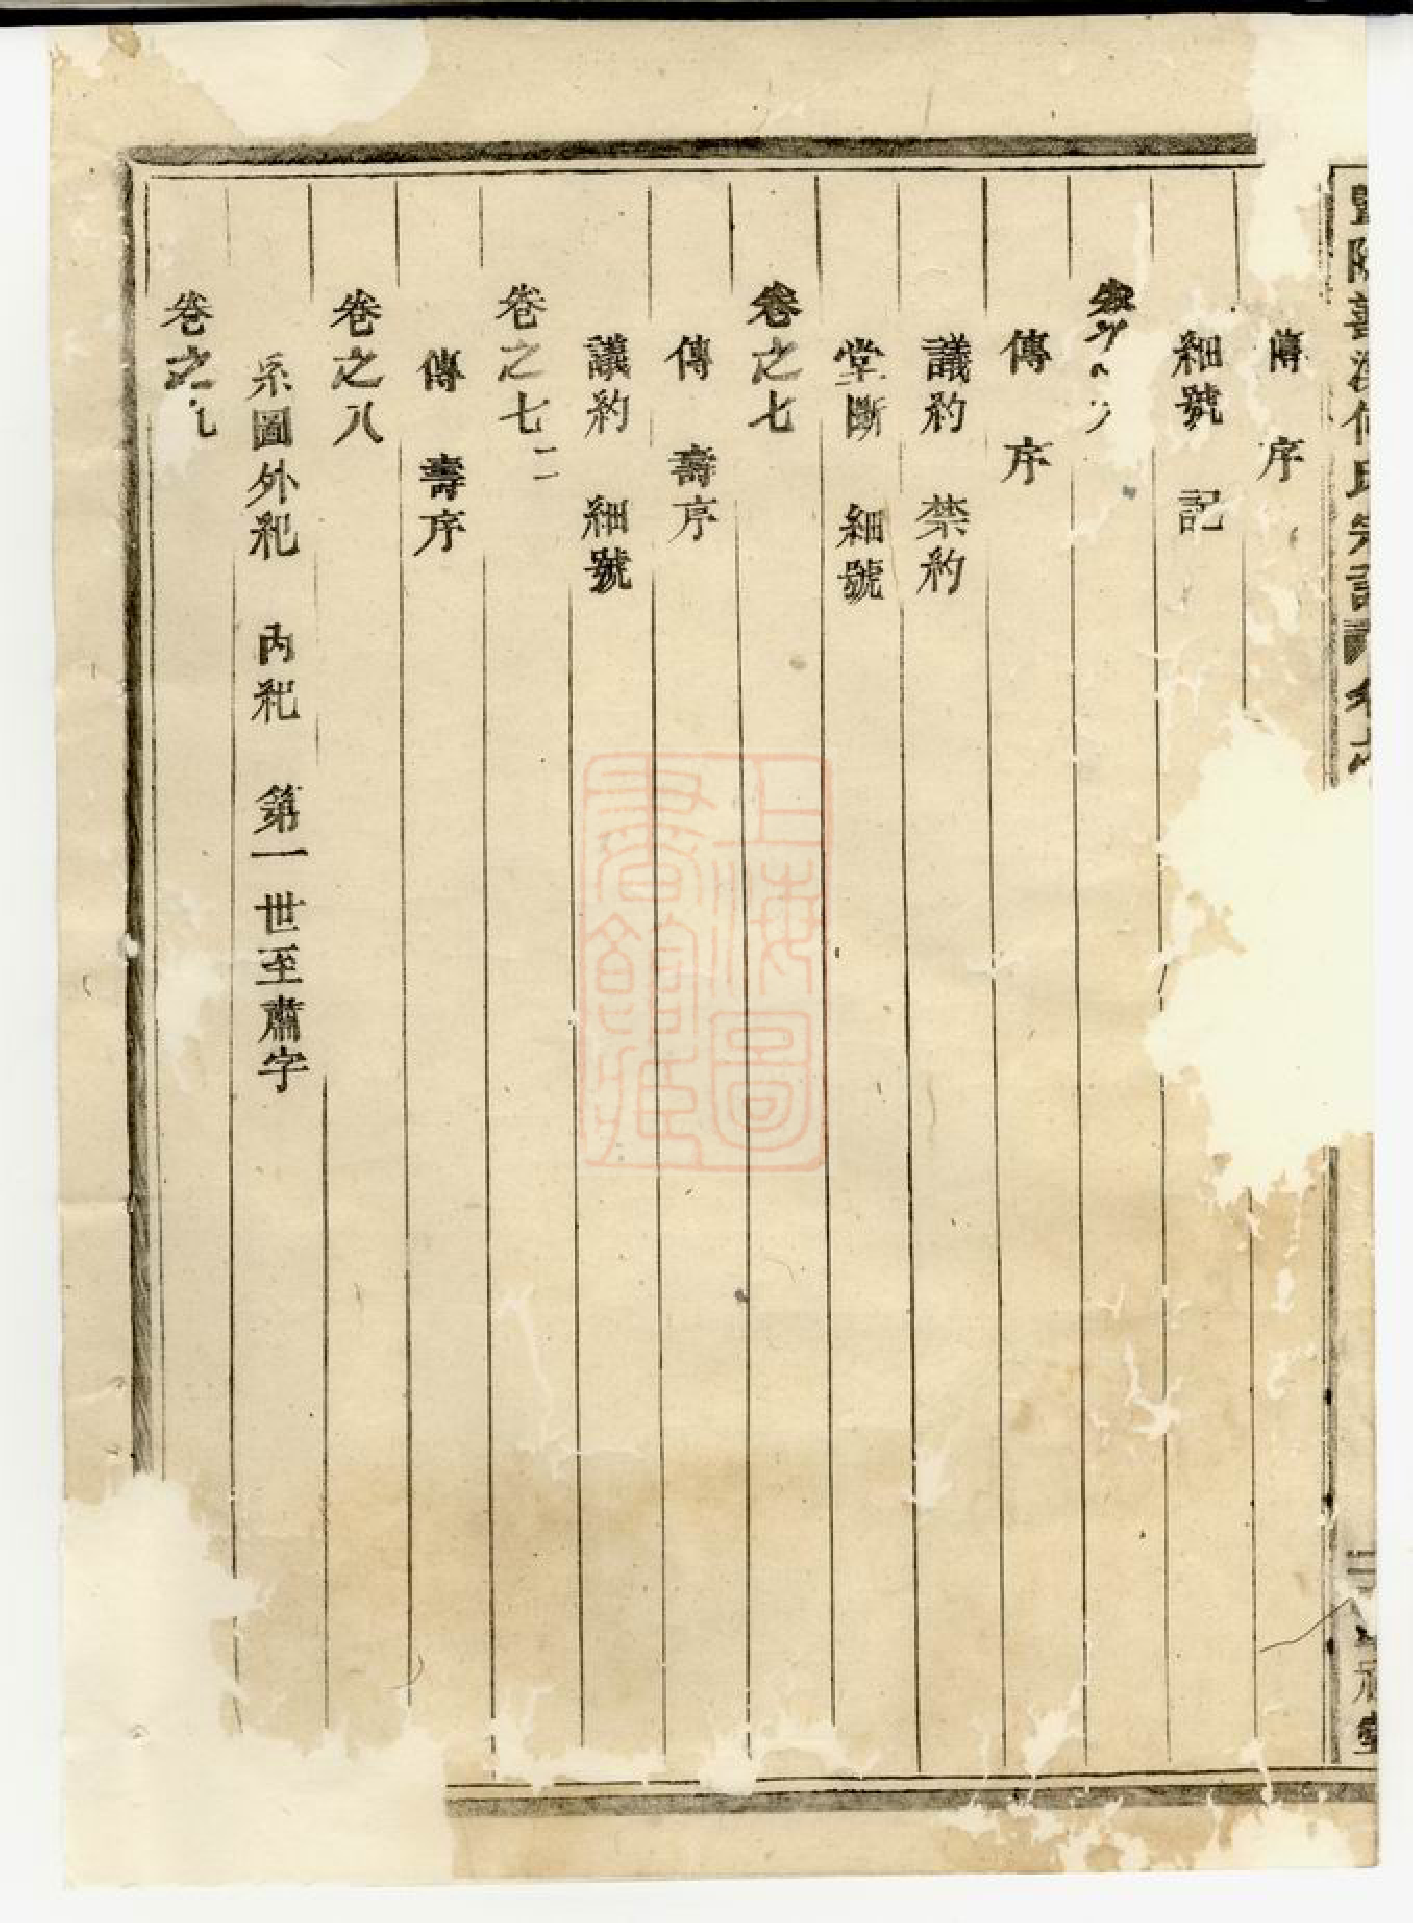 傳 序
細號 記
卷之六
傳 序
議約 禁約
堂斷 細號
卷之七
傳 壽序
議約 細號
卷之七 二
傳 壽序
卷之八
系圖外紀 內紀 第一世至肅字
卷之九
上海圖書館藏